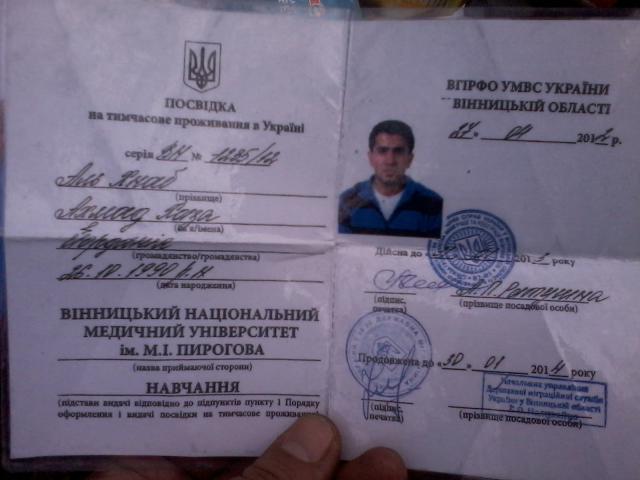 ПОСВІДКА
на тимчасове проживання в Україні
серія ВН № 1225/12
Аль Янаб
(прізвище)
Ахмад Яхя
(ім'я/імена)
Йорданія
(громадянство/громадянства)
26.10.1990 р.н
(дата народження)
ВІННИЦЬКИЙ НАЦІОНАЛЬНИЙ
МЕДИЧНИЙ УНІВЕРСИТЕТ
ім. М.І. ПИРОГОВА
(назва приймаючої сторони)
НАВЧАННЯ
(підстави видачі відповідно до підпунктів пункту 1 Порядку
оформлення і видачі посвідки на тимчасове проживання)
ВГІРФО УМВС УКРАЇНИ
ВІННИЦЬКІЙ ОБЛАСТІ
27 09 2012 р.
Дійсна до 2013 року
(підпис, (прізвище посадової особи)
печатка)
Продовжена до «30» 01 2014 року
Начальник управління
Державної міграційної служби
України у Вінницькій області
(підпис, (прізвище посадової особи)
печатка)